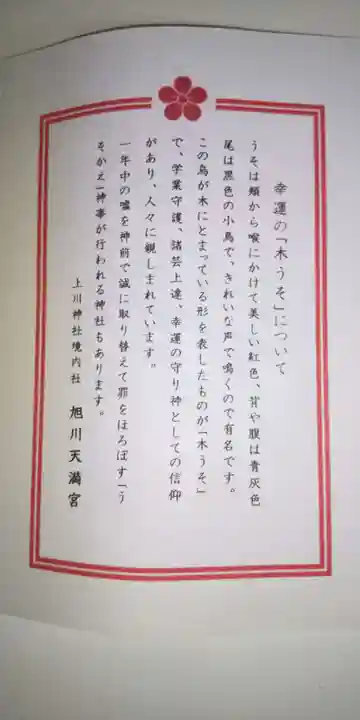 幸運の「木うそ」について
うそは頬から喉にかけて美しい紅色、背や腹は青灰色
尾は黒色の小鳥で、きれいな声で鳴くので有名です。
この鳥が木にとまっている形を表したものが「木うそ」
で、学業守護、諸芸上達、幸運の守り神としての信仰
があり、人々に親しまれています。
一年中の嘘を神前で誠に取り替えて罪をほろぼす「う
そかえ」神事が行われる神社もあります。
上川神社境内社 旭川天満宮